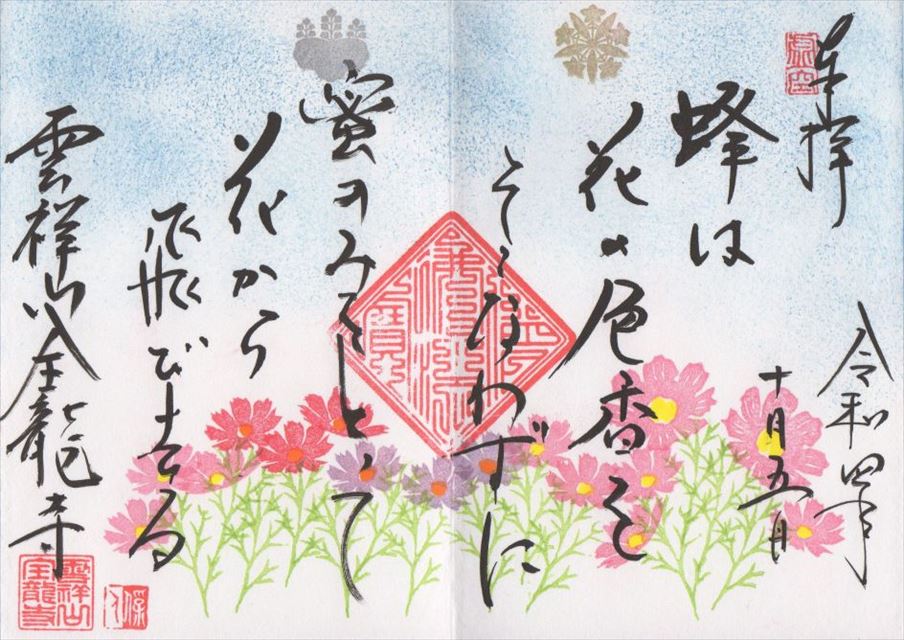 奉拝
令和四年
十月五日
蜂は
花の色香を
そこなわずに
蜜のみをとって
花から
飛び去る
雲祥山全龍寺
雲祥山
全龍寺